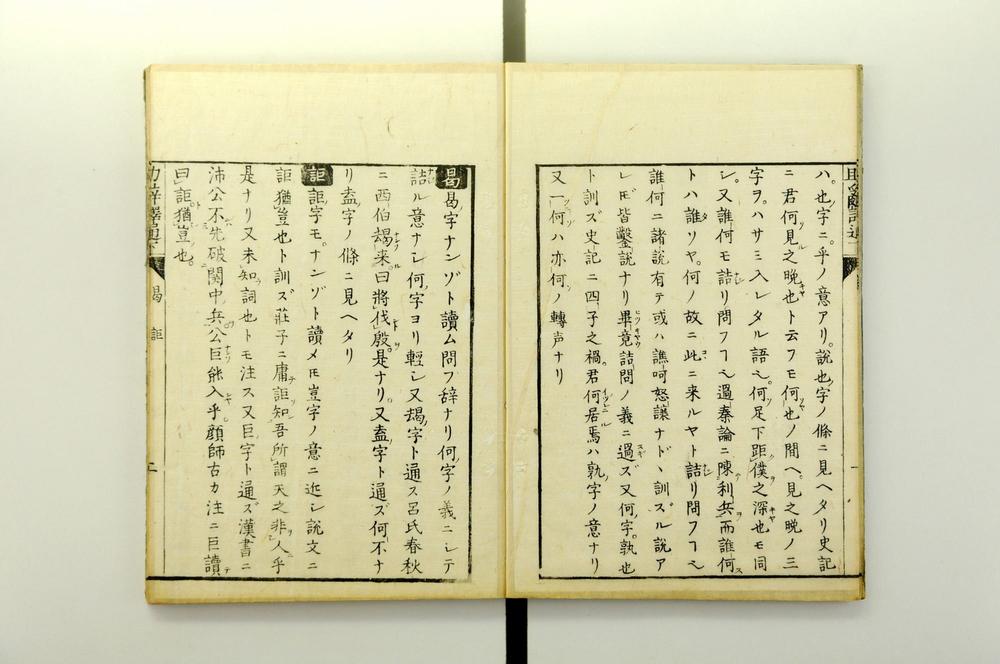 ハ。也字ニ。乎ノ意アリ。說也字ノ條ニ見ヘタリ史記
ニ君何見之晩也ト云フモ何也ノ間ヘ。見之晩ノ三
字ヲ。ハサミ入レタル語ヘ。何足下距僕之深也モ同
シ。又誰何モ詰リ問フヿヘ過秦論ニ陳利兵而誰何
トハ誰ソヤ。何ノ故ニ此ニ来ルヤト詰リ問フヿヘ
誰何ニ諸說有テ或ハ譙呵怒讓ナドヽ訓ズル說ア
レモ皆鑿說ナリ畢竟詰問ノ義ニ過ズ又何字。孰也
ト訓ズ史記ニ四子之禍。君何居焉ハ孰字ノ意ナリ
又一何ハ亦何ノ轉声ナリ
曷 曷字ナンゾト讀ム問フ辞ナリ何字ノ義ニシテ
詰ル意ナシ何字ヨリ輕シ又朅字ト通ス呂氏春秋
ニ西伯朅来曰將伐殷是ナリ。又盍字ト通ズ何不ナ
リ盍字ノ條ニ見ヘタリ
詎 詎字モ。ナンゾト讀メモ豈字ノ意ニ近シ說文ニ
詎猶豈也ト訓ズ莊子ニ庸詎知吾所謂天之非人乎
是ナリ又未知詞也トモ注ス又巨字ト通ズ漢書ニ
沛公不先破關中兵公巨能入乎。顔師古カ注ニ巨讀
曰詎猶豈也。
曷 詎